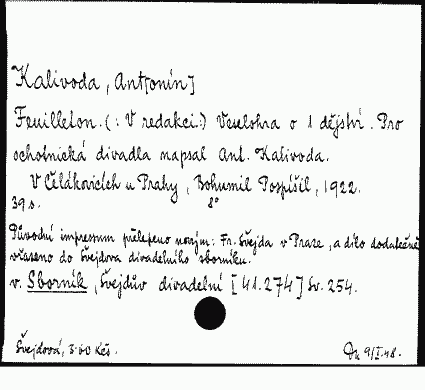 Kalivoda, Ant[onín]
Feuilleton. (: V redakci:) Veselohra o 1 dějství. Pro
ochotnická divadla napsal Ant. Kalivoda.
V Čelákovicích u Prahy, Bohumil Pospíšil, 1922.
39 s. 8°
Původní impressum přelepeno novým: Fr. Švejda v Praze, a dílo dodatečně
včleněno do Švejdova divadelního sborníku.
v. Sborník, Švejdův divadelní [41.274] Sv. 254.
Švejdová, 3·60 Kčs. Du 9/I.48.